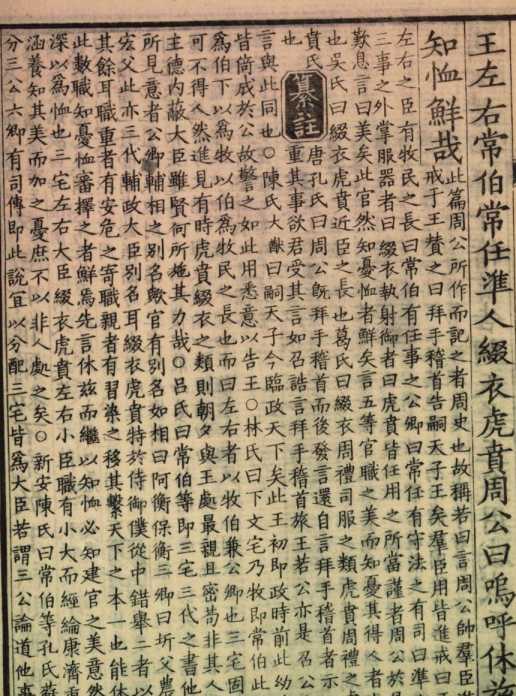 王左右常伯常任準人綴衣虎賁周公曰嗚呼休茲
知恤鮮哉
此篇周公所作而記之者周史也故稱若曰言周公帥羣臣進
戒于王賛之曰拜手稽首告嗣天子王矣羣臣用皆進戒曰
左右之臣有牧民之長曰常伯有任事之公卿曰常任有守法之有司曰準
三事之外掌服器者曰綴衣執射御者曰虎賁皆任用之所當謹者周公於
歎息言曰美矣此官然知憂恤者鮮矣言五等官職之美而知憂其得人者
也吳氏曰綴衣虎賁近臣之長也葛氏曰綴衣周禮司服之類虎賁周禮之
賁氏
也
纂註
唐孔氏曰周公旣拜手稽首而後發言還自言拜手稽首者示
重其事欲君受其言如召誥言拜手稽首旅王若公亦是召公
言與此同也○陳氏大猷曰嗣天子今臨政天下矣此王初即政時前此幼
皆倚成於公故警之如此用悉意以告王○林氏曰下文宅乃牧即常伯此
爲伯下以爲牧以伯爲牧民之長也而曰左右者以牧伯兼公卿也三宅固
可不得人然進見有時虎賁綴衣之類則朝夕與王處最親且密苟非其人
主德内蔽大臣雖賢何所施其力哉○吕氏曰常伯等即三宅三代之書他
所見意者公卿輔相之别名歟官有别名如相曰阿衡保衡三卿曰圻父農
宏父此亦三代輔政大臣别名耳綴衣虎賁特於侍御僕從中錯舉二者以
其餘耳職重者有安危之寄職親者有習染之移其繫天下之本一也能休
此數職知憂恤審擇之者鮮焉先言休茲而繼以知恤必知建官之美意然
深以爲恤也三宅左右大臣綴衣虎賁左右小臣職有小大而經綸康濟重
涵養知其美而加之憂庶不以非人處之矣○新安陳氏曰常伯等孔氏蔡
分三公六卿有司傳即此說宜以分配三宅皆爲大臣若謂三公論道他事